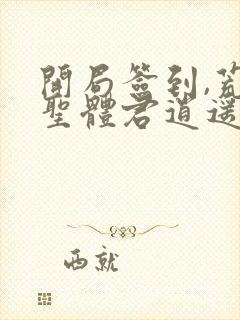 開局簽到,荒
聖體君逍遥
西就